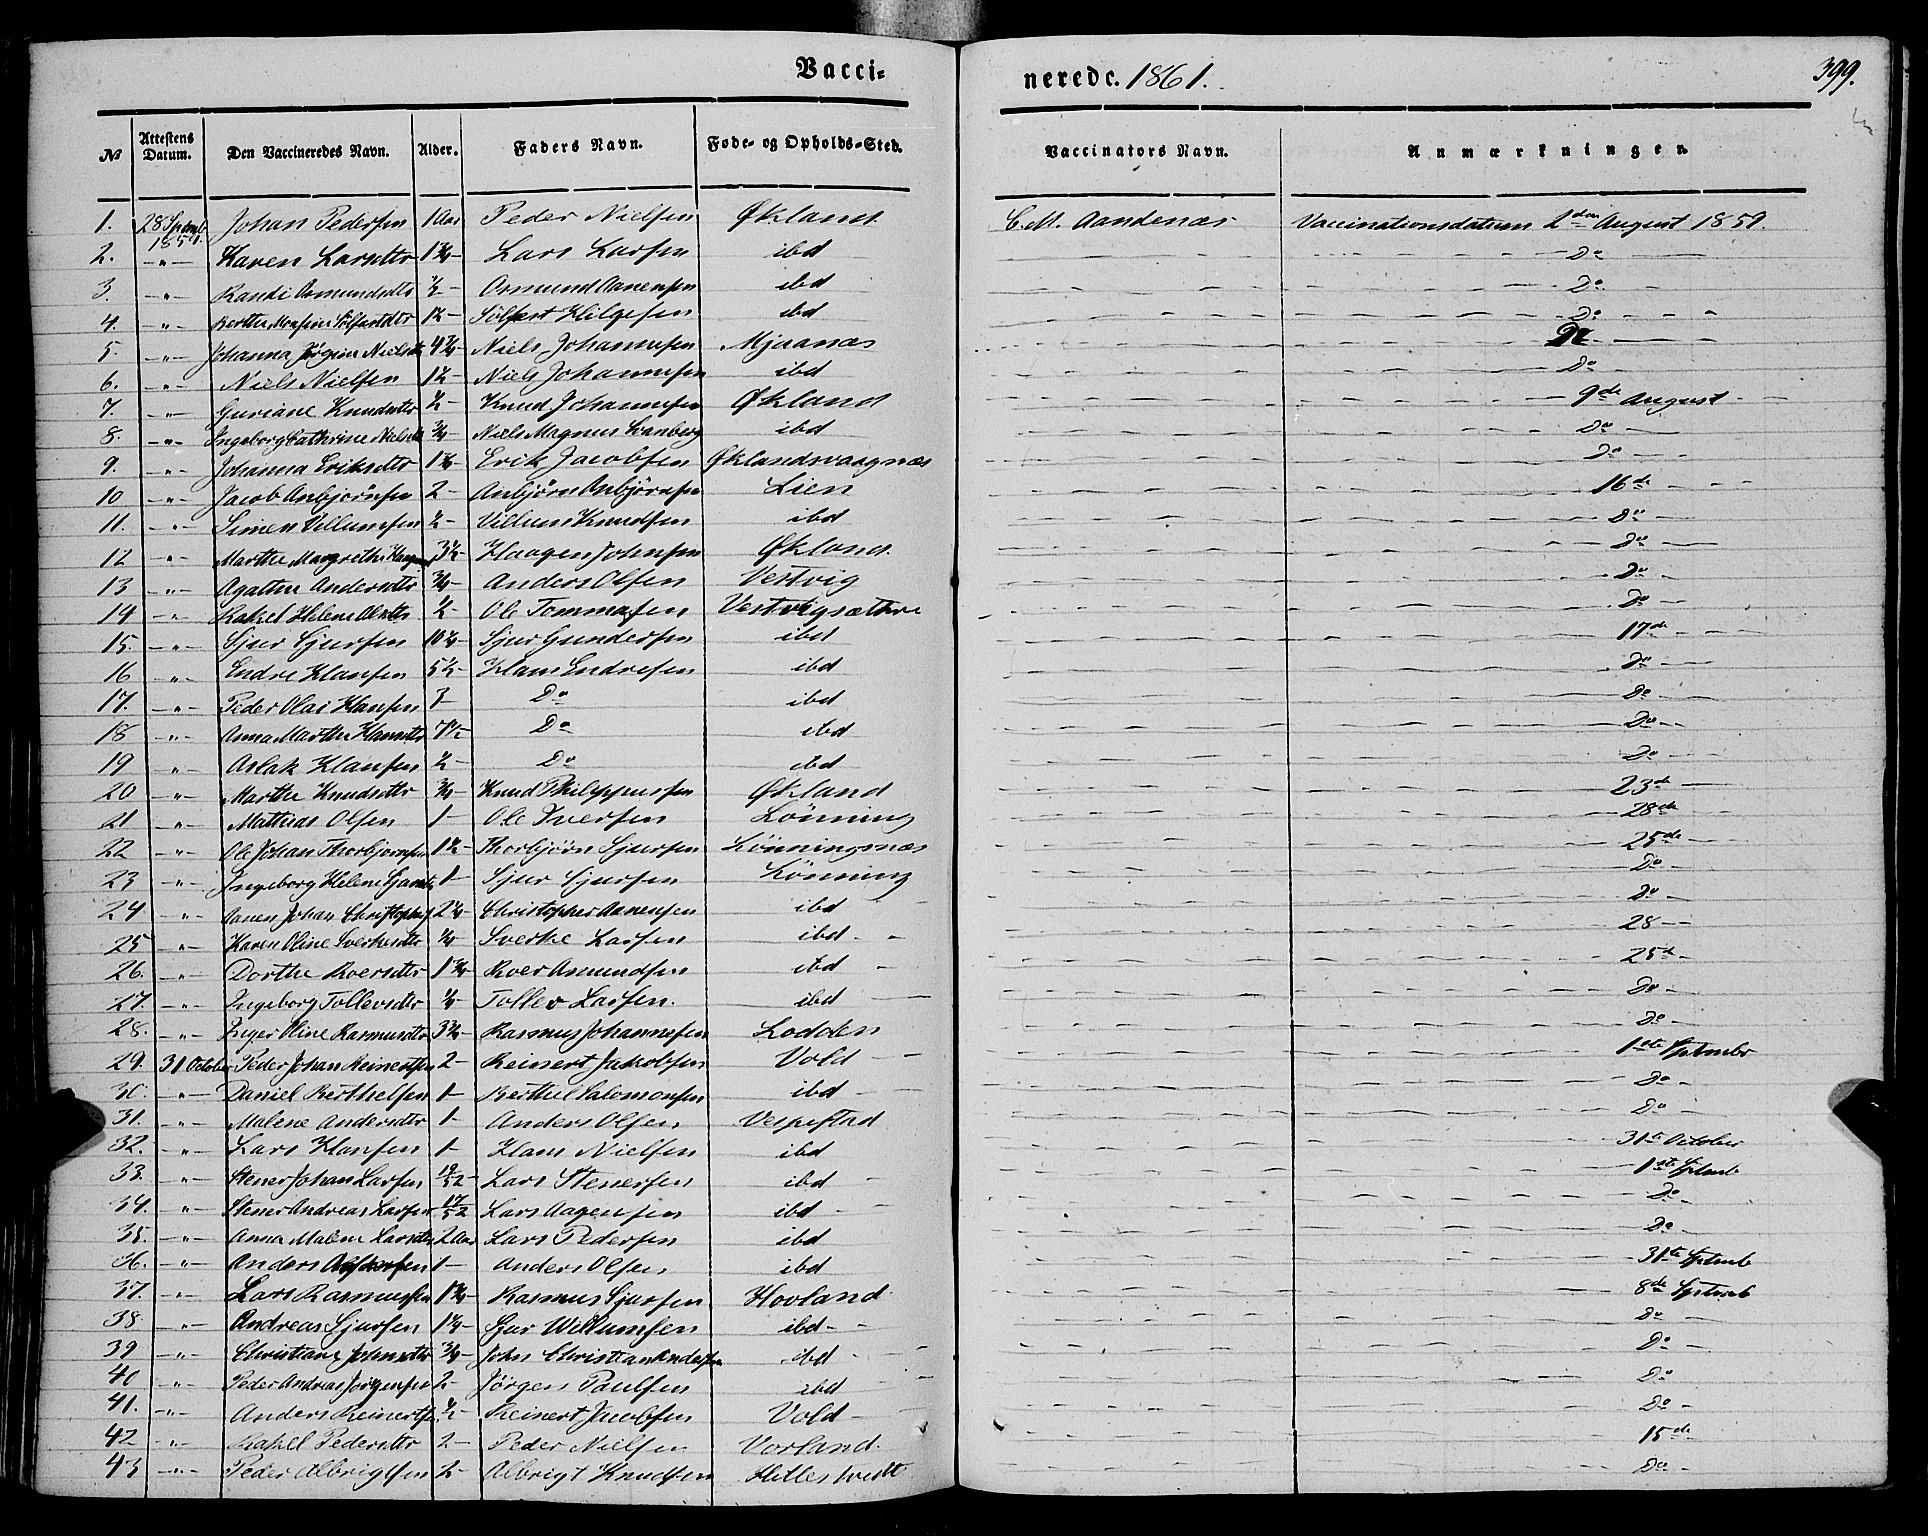 Vacci-
nerede. 1861.
399.
№ Attestens Datum. Den Vaccineredes Navn. Alder. Faders Navn. Føde- og Opholds-Sted. Vaccinators Navn. Anmærkningen
1. 28 Septmb 1859. Johan Pedersen 1 Aar Peder Nielsen Økland C. M. Aandenæs Vaccinationsdatum 2den August 1859.
2. -"- Karen Larsdtr 1 3/4 - Lars Larsen ibd Do
3. -"- Randi Osmundsdtr 1/2 - Osmund Aanensen ibd Do
4. -"- Berthe Monsine Sølfestdtr 1 1/2 - Sølfest Helgesen ibd Do
5. -"- Johanna Jørgine Nielsdtr 4 3/4 - Niels Johannesen Mjaanæs Do
6. -"- Niels Nielsen 1 1/2 - Niels Johannesen ibd Do
7. -"- Guriane Knudsdtr 1/2 - Knud Johannesen Økland 9de August
8. -"- Ingeborg Cathrine Nielsdtr 3/4 - Niels Magnus Svanberg ibd Do
9. -"- Johanna Eriksdtr 1 1/2 - Erik Jacobsen Øklandsvaagnæs Do
10 -"- Jacob Anbjørnsen 2 - Anbjørn Anbjørnsen Lien 16de
11. -"- Simen Villumsen 1/2 - Villum Knudsen ibd Do
12 -"- Marthe Margrethe Haagens 3 1/2 - Haagen Johnsen Økland Do
13 -"- Agathe Andersdtr 3/4 - Anders Olsen Vestvig Do
14 -"- Rakel Helene Olsdtr 1/2 - Ole Tommasen Vestvigsæthre Do
15. -"- Sjur Sjursen 10 1/4 - Sjur Gundersen ibd 17de
16 -"- Endre Hansen 5 1/2 - Hans Endresen ibd Do
17. -"- Peder Olai Hansen 3 - Do ibd Do
18 -"- Anna Marthe Hansdtr 7 1/2 - Do ibd Do
19 -"- Aslak Hansen 1/2 - Do ibd Do
20 -"- Marthe Knudsdtr 3/4 - Knud Philippussen Økland 23de
21 -"- Mathias Olsen 1 - Ole Iversen Lønning 28de
22 -"- Ole Johan Thorbjørnsen 1 1/2 - Thorbjørn Sjursen Lønningsnæs 25de
23 -"- Ingeborg Helene Sjursdtr 1 - Sjur Sjursen Lønning Do
24 -"- Aanen Johan Christophers 2 1/4 - Christopher Aanensen ibd Do
25 -"- Karen Oline Sverkesdtr 1/4 - Sverke Larsen ibd 28
26. -"- Dorthe Roersdtr 1 3/4 - Roer Asmundsen ibd 25de
27. -"- Ingeborg Tollevsdtr 1/4 - Tollev Larsen. ibd Do
28. -"- Inger Oline Rasmusdtr 3 3/4 - Rasmus Johannesen Lodden Do
29. 31 October Peder Johan Reinertsen 2 - Reinert Jakobsen Vold 1ste Septembr
30. -"- Daniel Berthelsen 1 - Berthel Salomonsen ibd Do
31. -"- Malene Andersdtr 1 - Anders Olsen Vespestad Do
32. -"- Lars Hansen 1 - Hans Nielsen ibd 31te October
33. -"- Stener Johan Larsen 19/52 - Lars Stenersen ibd 1ste Septemb
34. -"- Stener Andreas Larsen 17/52 Lars Aagensen ibd Do
35. -"- Anna Malene Larsdtr 2 Aar Lars Pedersen ibd Do
36. -"- Anders Andersen 1 - Anders Olsen ibd 31te Septemb
37. -"- Lars Rasmussen 1 3/4 - Rasmus Sjursen Hovland 8de Septemb
38. -"- Andreas Sjursen 1 1/4 - Sjur Willumsen ibd Do
39 -"- Christiane Johnsdtr 3/4 - John Christian Andersen ibd Do
40 -"- Peder Andreas Jørgensen 2 - Jørgen Paulsen ibd Do
41. -"- Anders Reinertsen 1/2 - Reinert Jacobsen Vold Do
42 -"- Rakel Pedersdtr 2 - Peder Nielsen Vorland 15de
43 -"- Peder Albrigtsen 2 - Albrigt Knudsen Hillestvedt Do